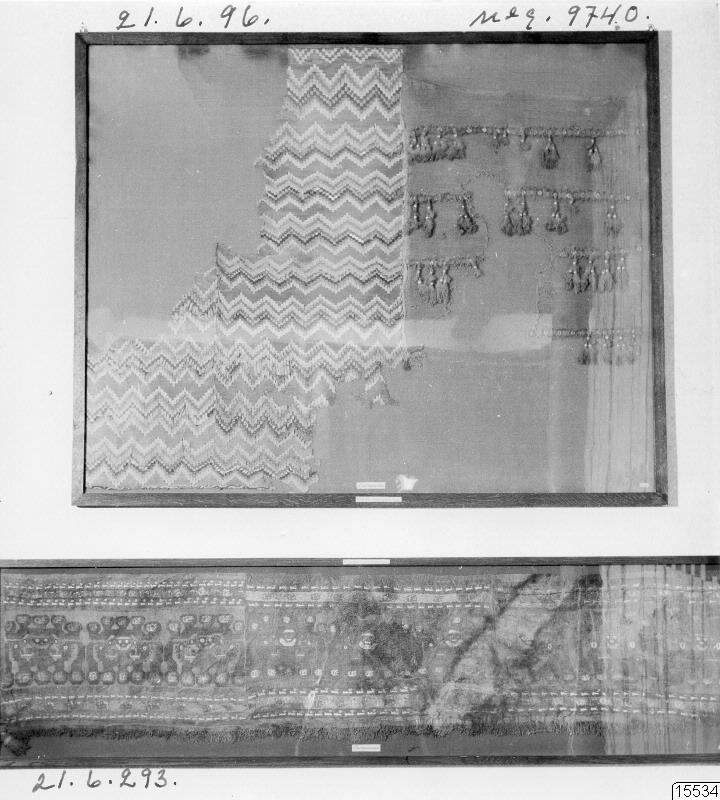 21.6.96. neg. 9740.
21.6.293.
15534